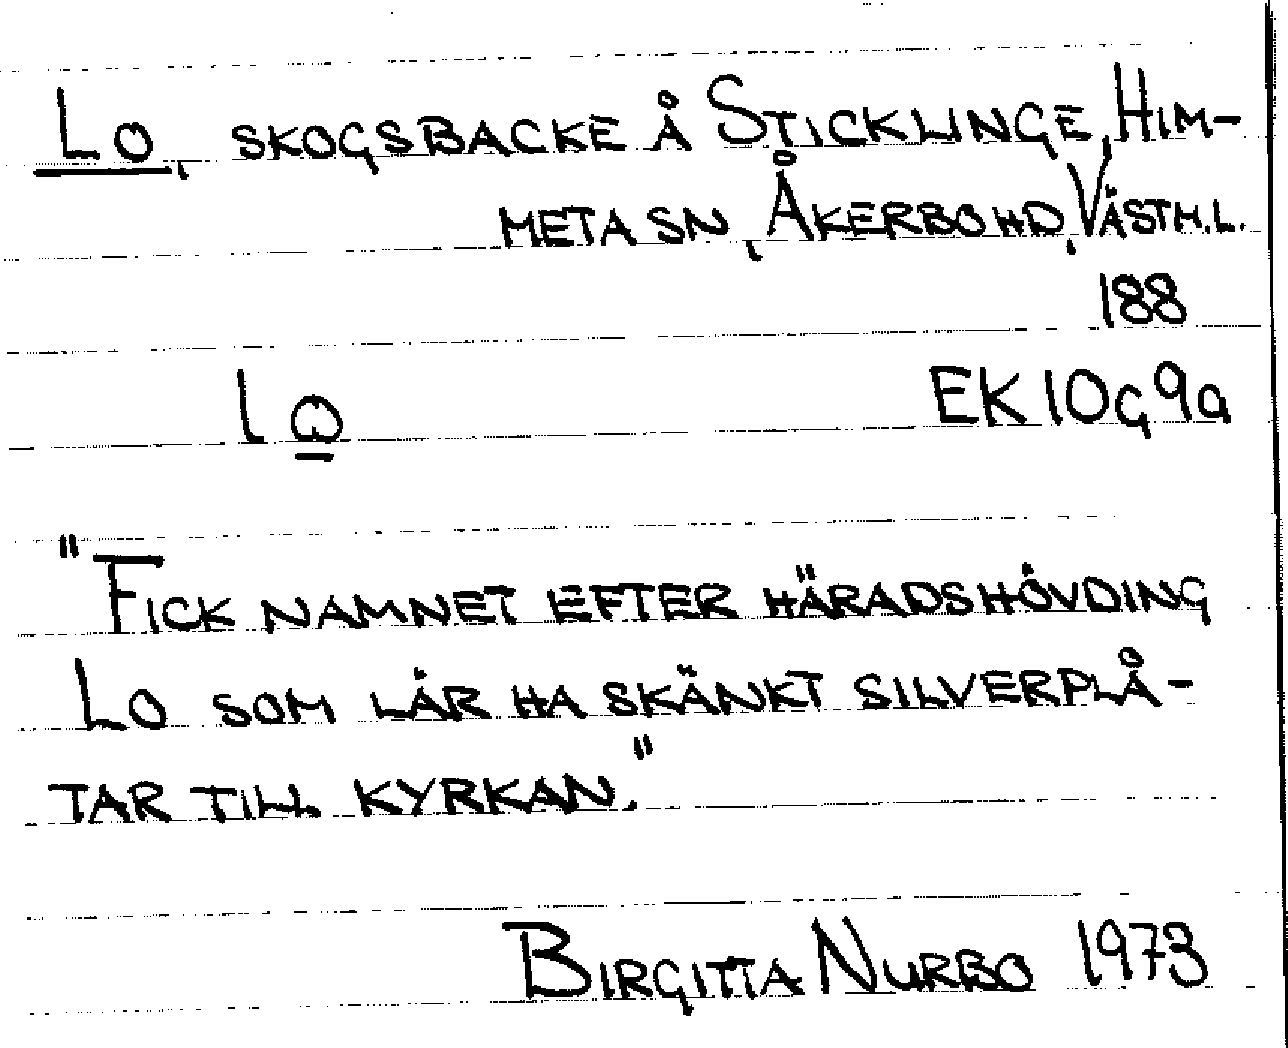 Lo, SKOGSBACKE Å STICKLINGE, HIM-
META SN, ÅKERBO HD, VÄSTM.L.
188
lo
EK 10G9a
"FICK NAMNET EFTER HÄRADSHÖVDING
LO SOM LÄR HA SKÄNKT SILVERPLÅ-
TAR TILL KYRKAN."
BIRGITTA NURBO 1973